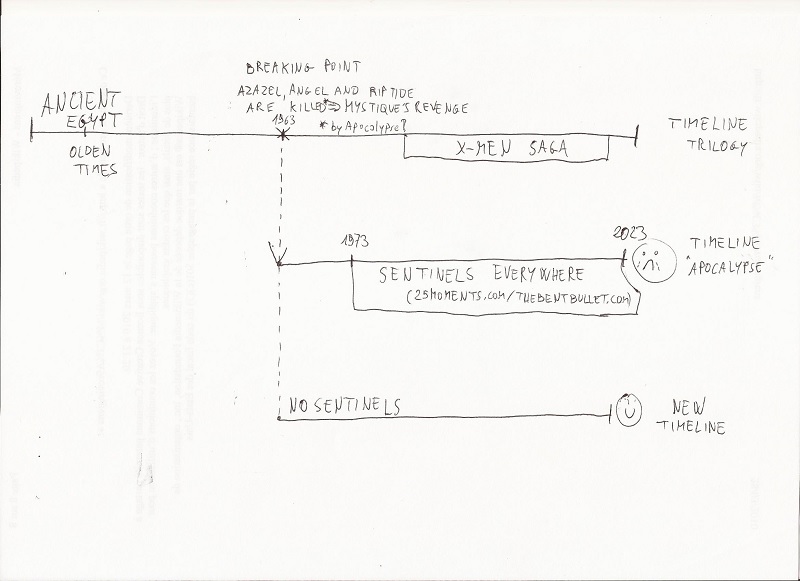 BREAKING POINT
AZAZEL, ANGEL AND RIPTIDE
ARE KILLED* ⇒ MYSTIQUE'S REVENGE
* by Apocalypse?
1963
ANCIENT
EGYPT
OLDEN
TIMES
X-MEN SAGA
TIMELINE
TRILOGY
1973
2023
SENTINELS EVERYWHERE
(25MOMENTS.COM/THEBENTBULLET.COM)
TIMELINE
"APOCALYPSE"
NO SENTINELS
NEW
TIMELINE